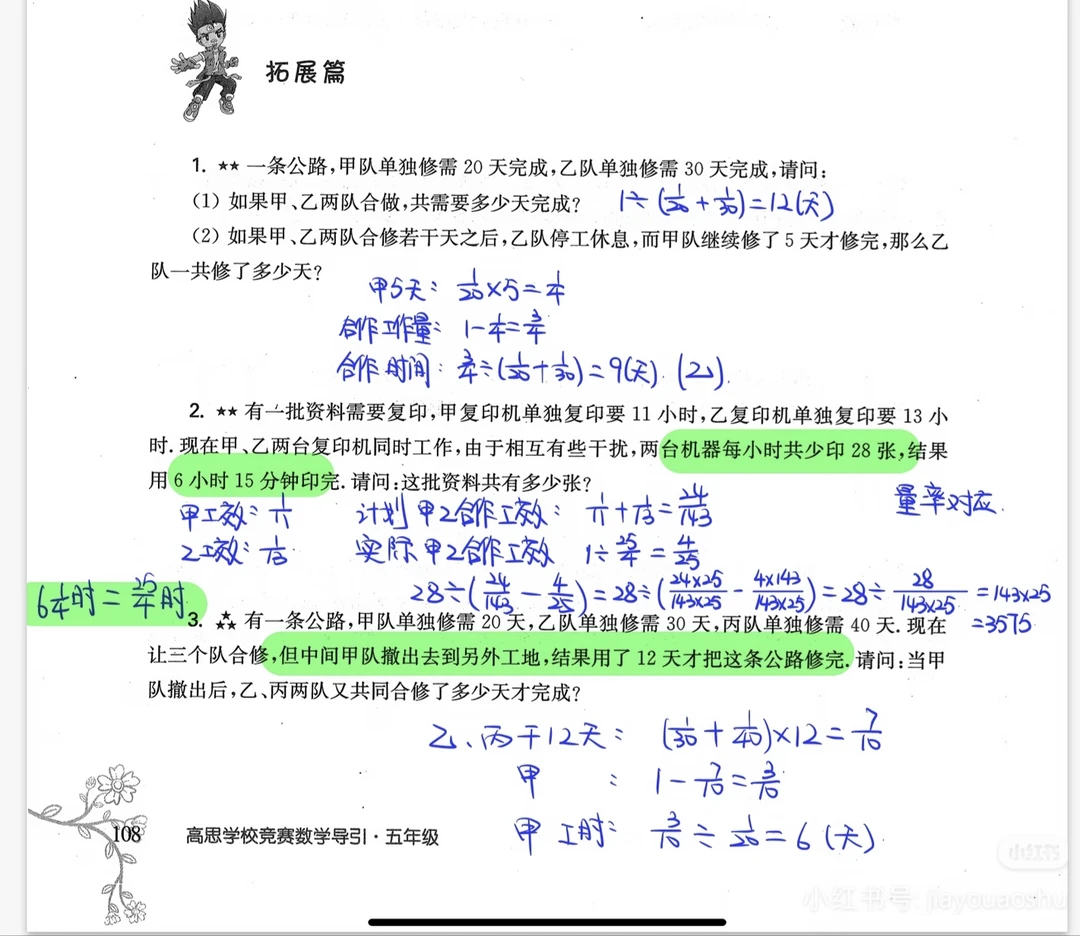 拓展篇
1. ★★ 一条公路,甲队单独修需 20 天完成,乙队单独修需 30 天完成,请问:
(1) 如果甲、乙两队合做,共需要多少天完成? 1÷(1/20+1/30)=12(天)
(2) 如果甲、乙两队合修若干天之后,乙队停工休息,而甲队继续修了 5 天才修完,那么乙
队一共修了多少天?
甲5天: 1/20×5=1/4
合作工作量: 1-1/4=3/4
合作时间: 3/4÷(1/20+1/30)=9(天). (乙).
2. ★★ 有一批资料需要复印,甲复印机单独复印要 11 小时,乙复印机单独复印要 13 小
时. 现在甲、乙两台复印机同时工作,由于相互有些干扰,两台机器每小时共少印 28 张,结果
用 6 小时 15 分钟印完. 请问:这批资料共有多少张?
量率对应.
甲工效: 1/11 计划 甲乙合作工效: 1/11+1/13=24/143
乙工效: 1/13 实际 甲乙合作工效 1÷25/4=4/25
6 1/4时=25/4时.
28÷(24/143-4/25)=28÷(24×25/143×25-4×143/143×25)=28÷28/143×25=143×25
=3575
3. ★★★ 有一条公路,甲队单独修需 20 天,乙队单独修需 30 天,丙队单独修需 40 天. 现在
让三个队合修,但中间甲队撤出去到另外工地,结果用了 12 天才把这条公路修完. 请问:当甲
队撤出后,乙、丙两队又共同合修了多少天才完成?
乙、丙干12天: (1/30+1/40)×12=7/10
甲 : 1-7/10=3/10
甲 工时: 3/10÷1/20=6(天)
108 高思学校竞赛数学导引·五年级
小红书
小红书号: jiayouaoshu